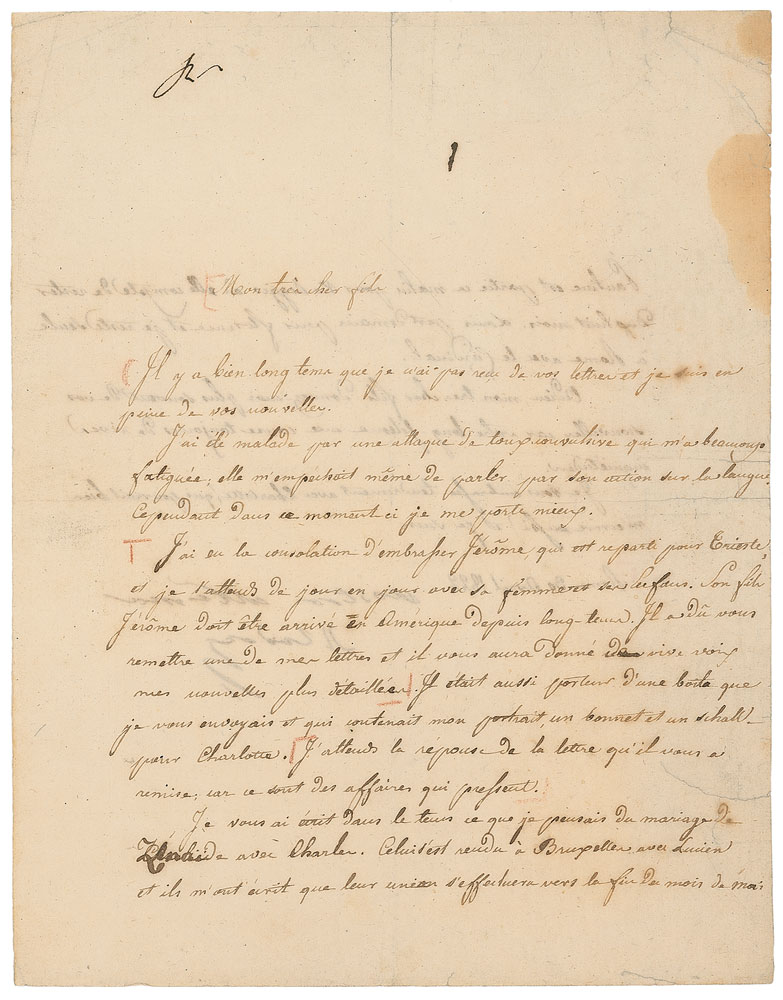 1
Mon très cher fils
Il y a bien long tems que je n'ai pas reçu de vos lettres et je suis en
peine de vos nouvelles.
J'ai été malade par une attaque de toux convulsive qui m'a beaucoup
fatiguée; elle m'empechait même de parler par son action sur la langue.
Cependant dans ce moment ci je me porte mieux.
J'ai eu la consolation d'embrasser Jérôme, qui est reparti pour Trieste,
et je l'attends de jour en jour avec sa femme et ses enfans. Son fils
Jérôme doit être arrivé en Amerique depuis long-tems. Il a dû vous
remettre une de mes lettres et il vous aura donné de vive voix
mes nouvelles plus détaillées. Il était aussi porteur d'une boite que
je vous envoyais et qui contenait mon portrait, un bonnet et un schall
pour Charlotte. J'attends la réponse de la lettre qu'il vous a
remise, car ce sont des affaires qui pressent.
Je vous ai écrit dans le tems ce que je pensais du mariage de
Zénaïde avec Charles. Celui est rendu à Bruxelles avec Lucien
et ils m'ont écrit que leur union s'effectuera vers la fin du mois de mois